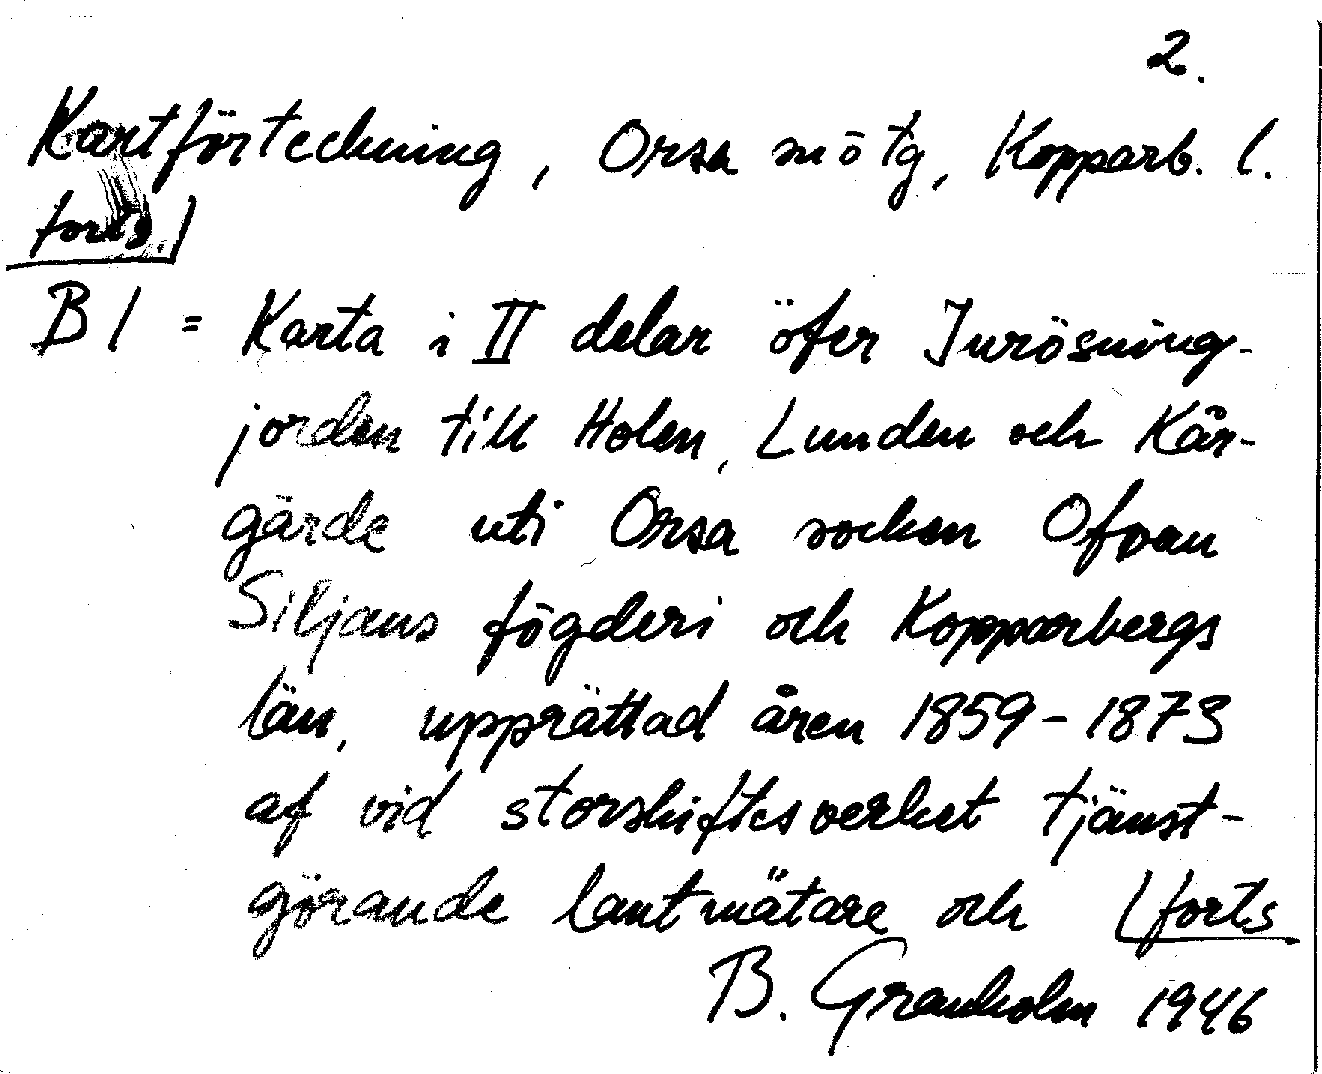 2.
Kartförteckning, Orsa mötg, Kopparb. l.
forts.)
B1 = Karta i II delar öfer Inrösning-
jorden till Holen, Lunden och Kår-
gärde uti Orsa socken Ofvan
Siljans fögderi och Kopparbergs
län, upprättad åren 1859-1873
af vid storskiftesverket tjänst-
görande lantmätare och (forts
B. Granholm 1946